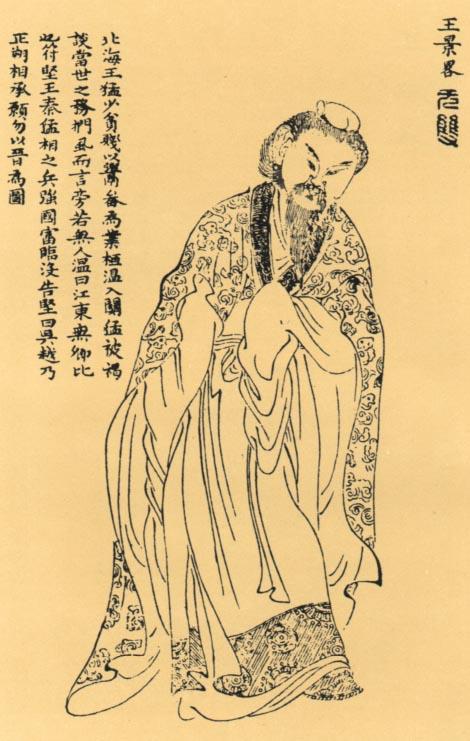 王景畧 无雙
北海王猛少貧賤以鬻畚為業桓温入關猛被褐
談當世之務捫風而言旁若無人温曰江東無卿比
也符堅王秦猛相之兵強國富臨没告堅曰吳越乃
正朔相承願勿以晉為圖